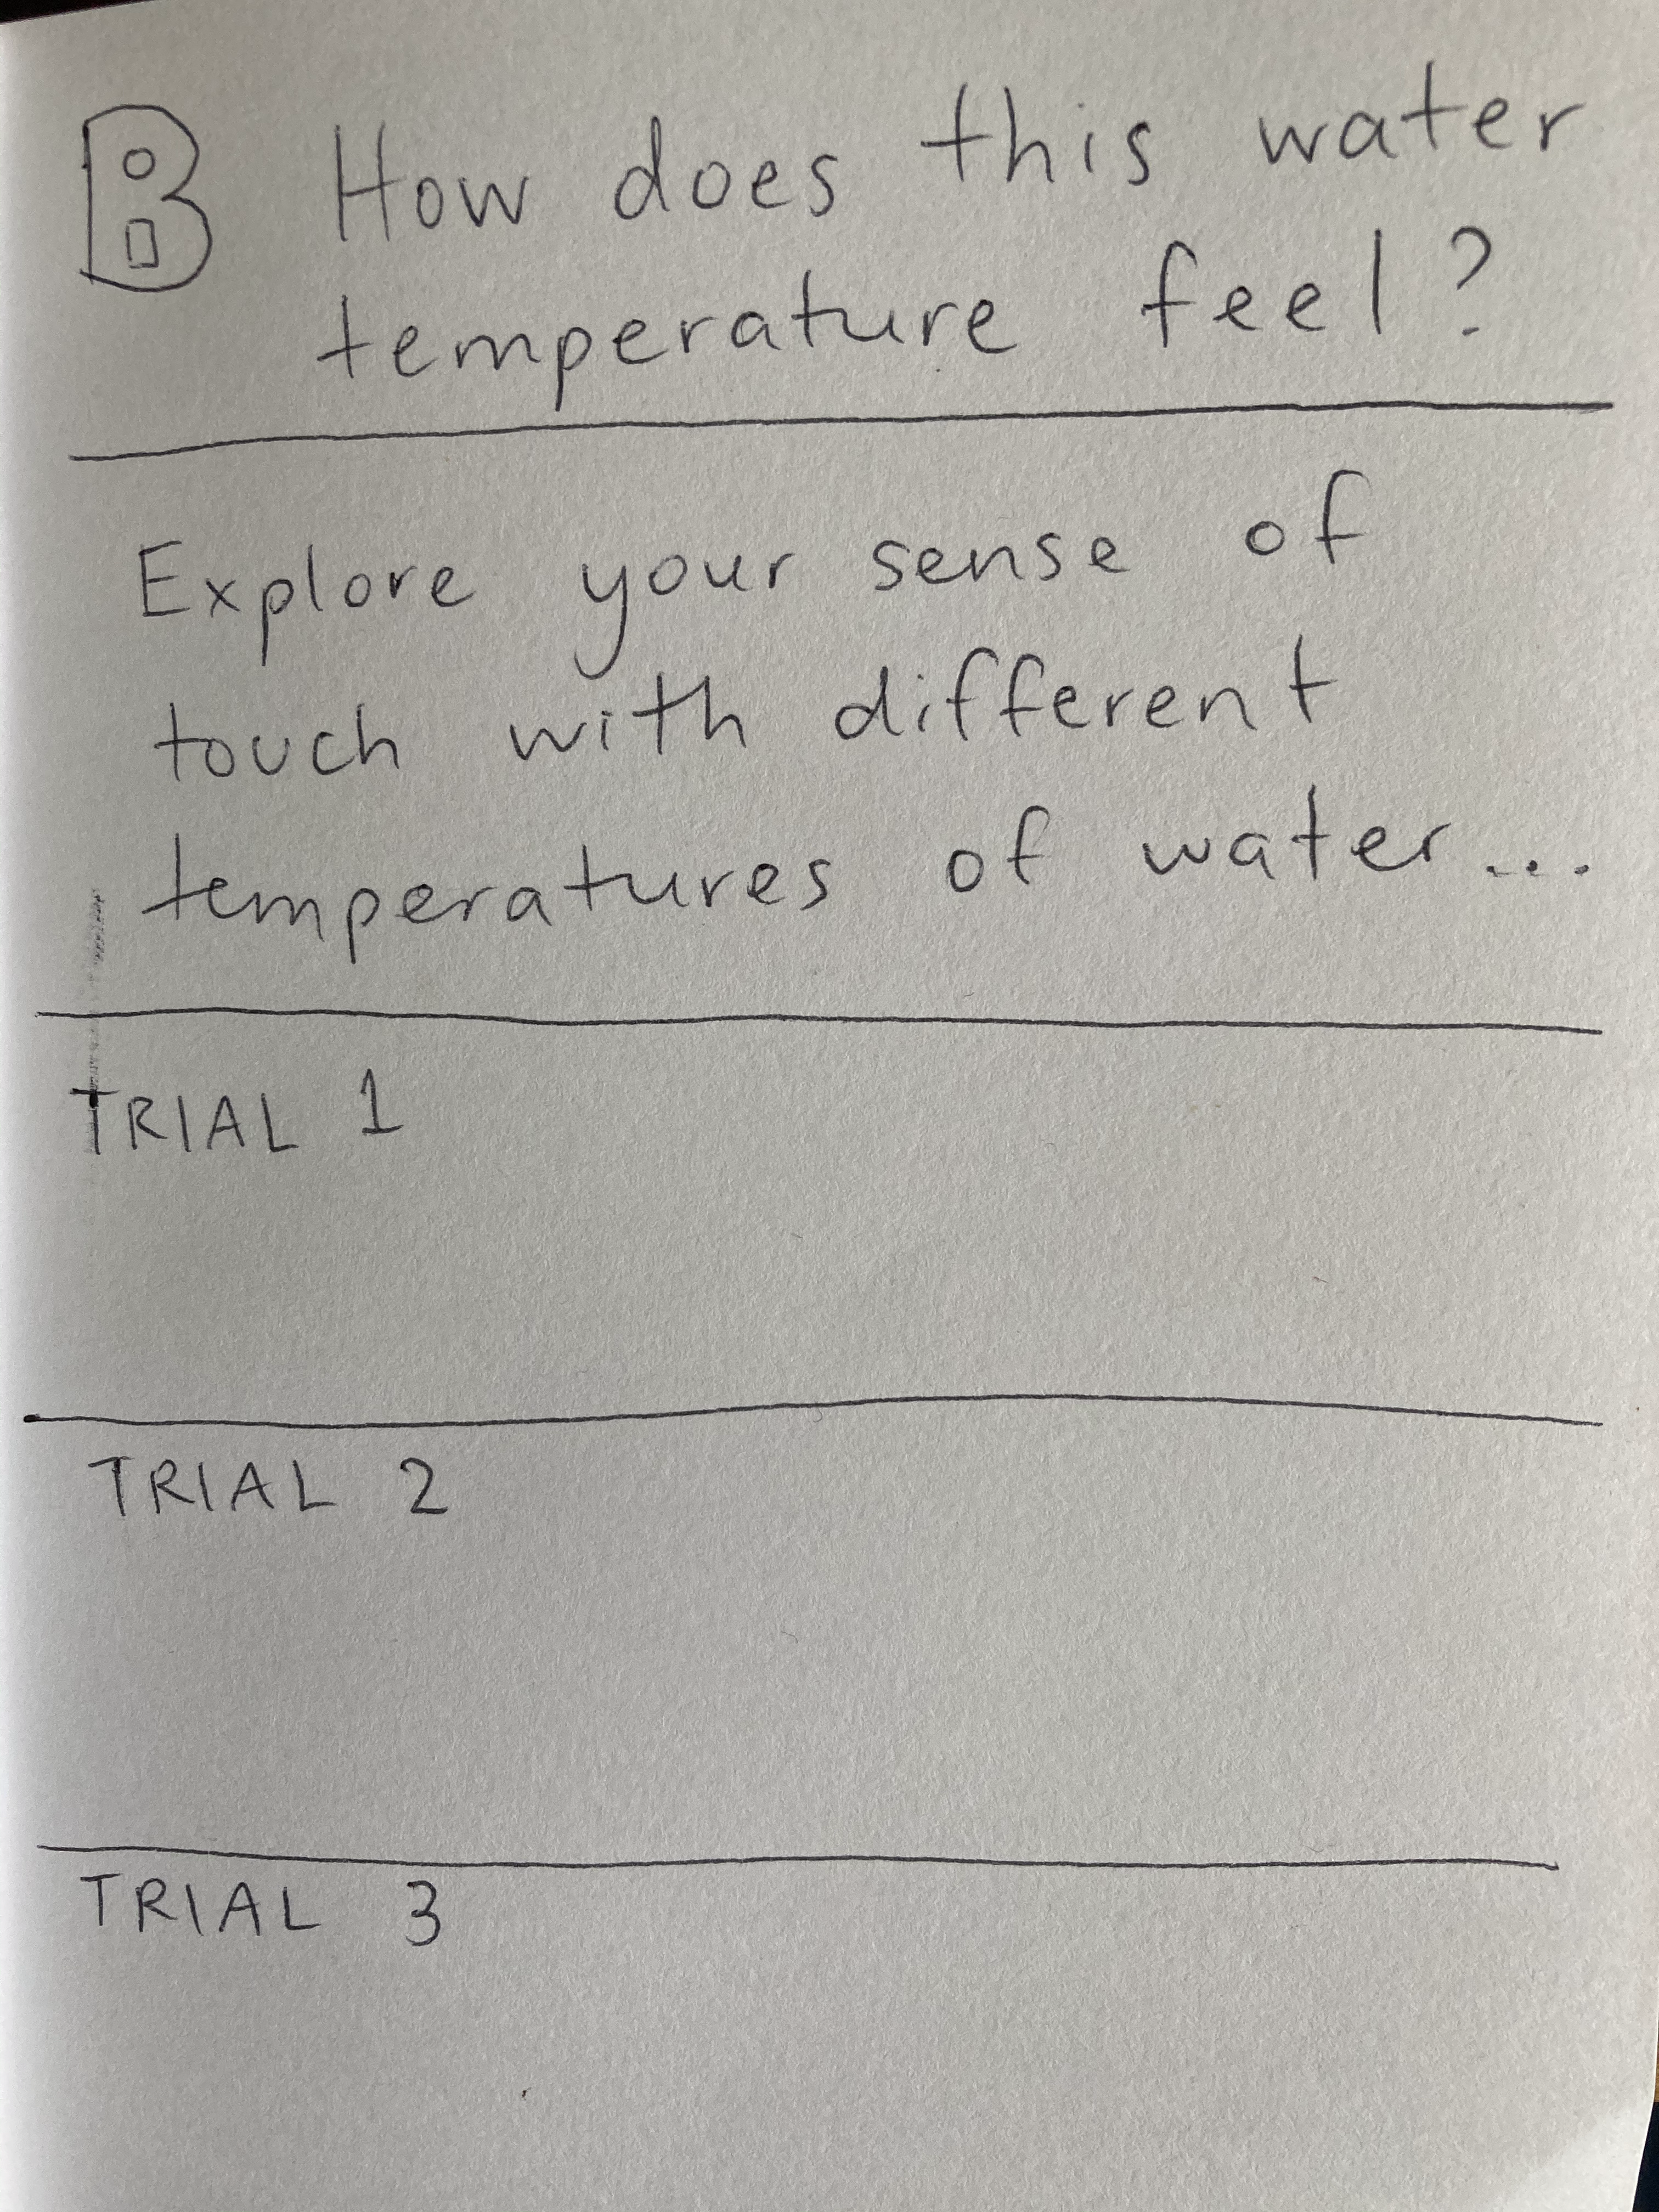 B How does this water
temperature feel?
Explore your sense of
touch with different
temperatures of water...
TRIAL 1
TRIAL 2
TRIAL 3